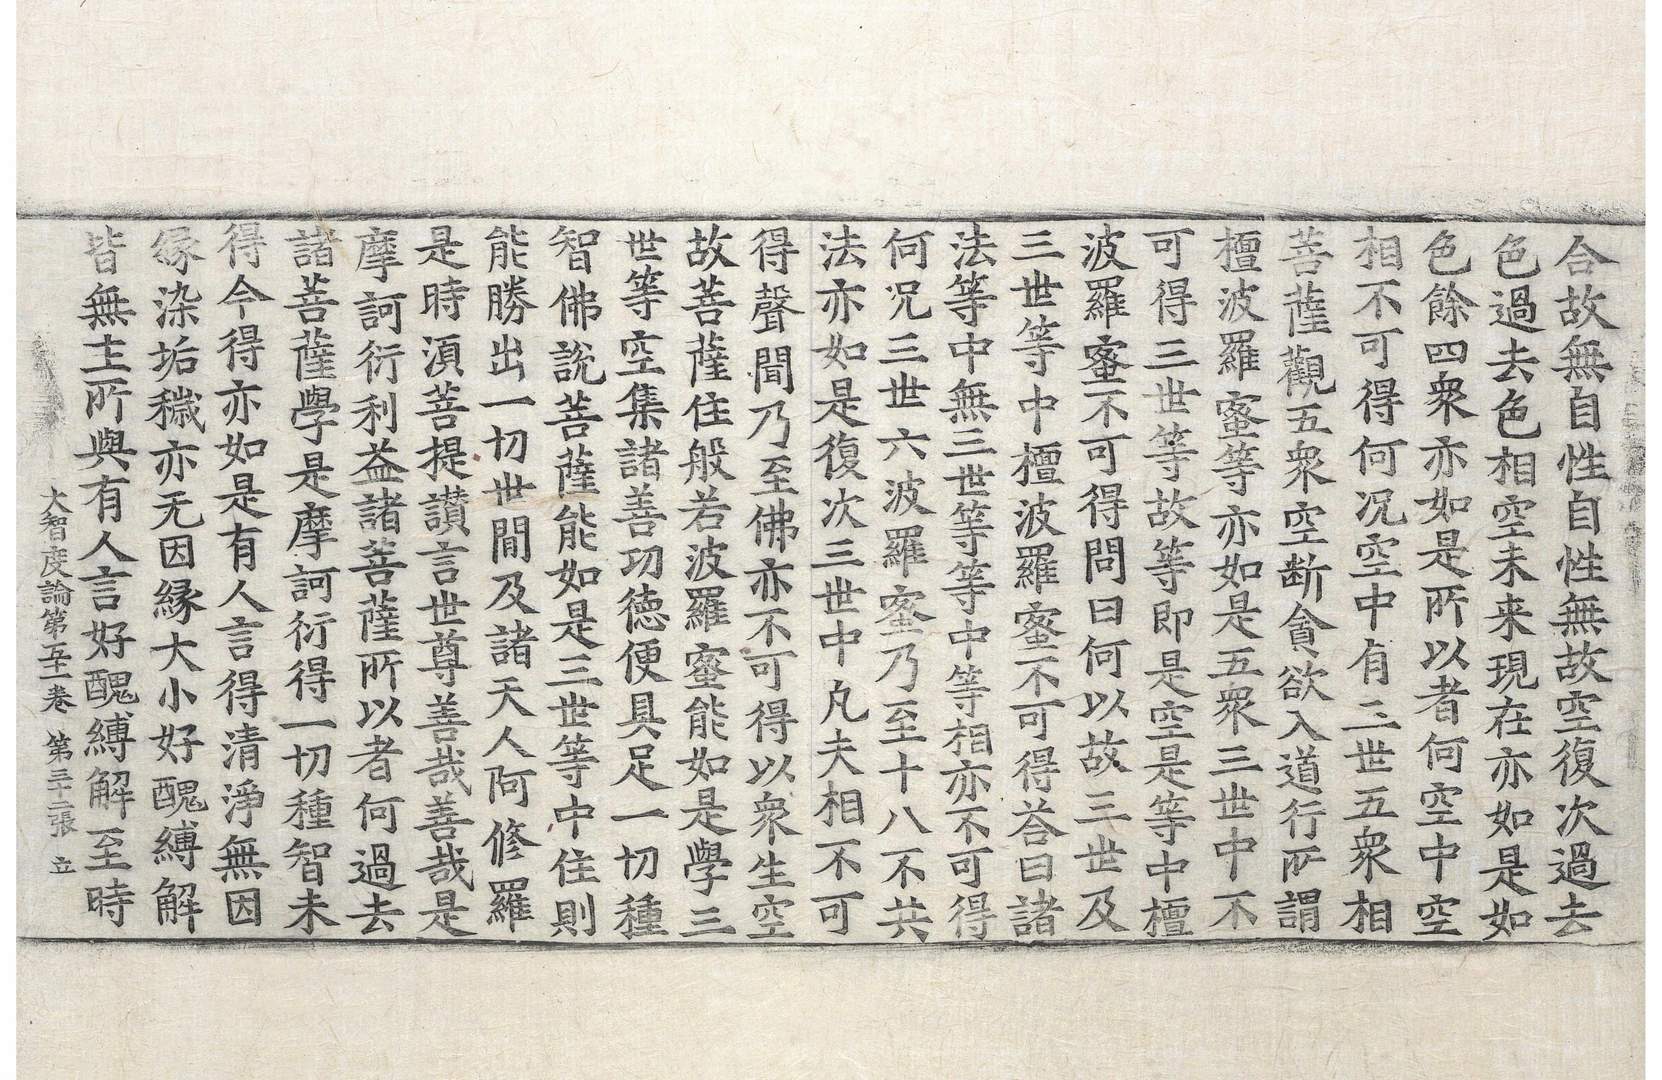 合故無自性自性無故空復次過去
色過去色相空未来現在亦如是如
色餘四衆亦如是所以者何空中空
相不可得何况空中有三世五衆相
菩薩觀五衆空断貪欲入道行所謂
檀波羅蜜等亦如是五衆三世中不
可得三世等故等即是空是等中檀
波羅蜜不可得問曰何以故三世及
三世等中檀波羅蜜不可得荅曰諸
法等中無三世等等中等相亦不可得
何况三世六波羅蜜乃至十八不共
法亦如是復次三世中凡夫相不可
得聲聞乃至佛亦不可得以衆生空
故菩薩住般若波羅蜜能如是學三
世等空集諸善功德便具足一切種
智佛說菩薩能如是三世等中住則
能勝出一切世間及諸天人阿修羅
是時湏菩提讃言世尊善哉善哉是
摩訶衍利益諸菩薩所以者何過去
諸菩薩學是摩訶衍得一切種智未
得今得亦如是有人言得清淨無因
縁染垢穢亦无因縁大小好醜縛解
皆無主所與有人言好醜縛解至時
大智度論第五十一卷　第三十二張　立